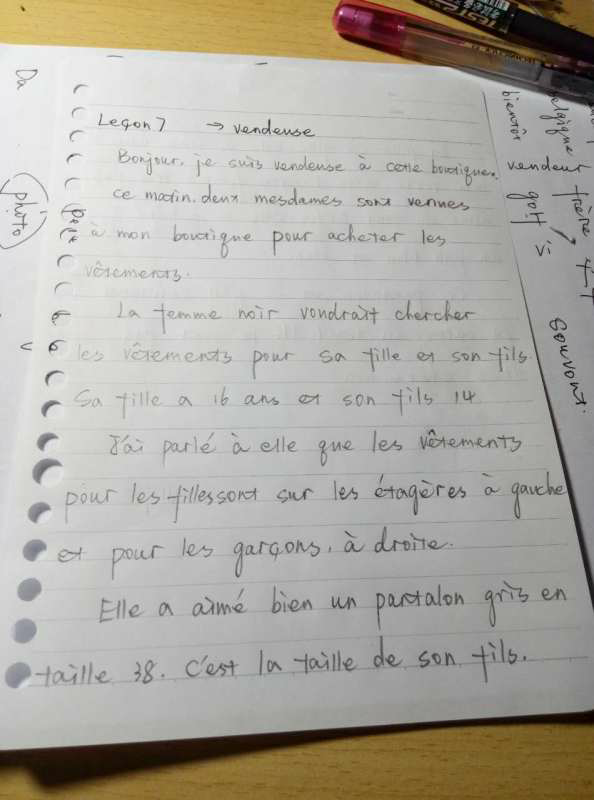 Leçon 7 → vendeuse
Bonjour, je suis vendeuse à cette boutique.
ce matin. deux mesdames sont venues
à mon boutique pour acheter les
vêtements.
La femme noir vondrait chercher
les vêtements pour sa fille et son fils.
Sa fille a 16 ans et son fils 14
J'ai parlé à elle que les vêtements
pour les filles sont sur les étagères à gauche
et pour les garçons, à droite.
Elle a aimé bien un pantalon gris en
taille 38. C'est la taille de son fils.
Da
photo
elgique
bientôt
vendeur
frère
golf
souvont.